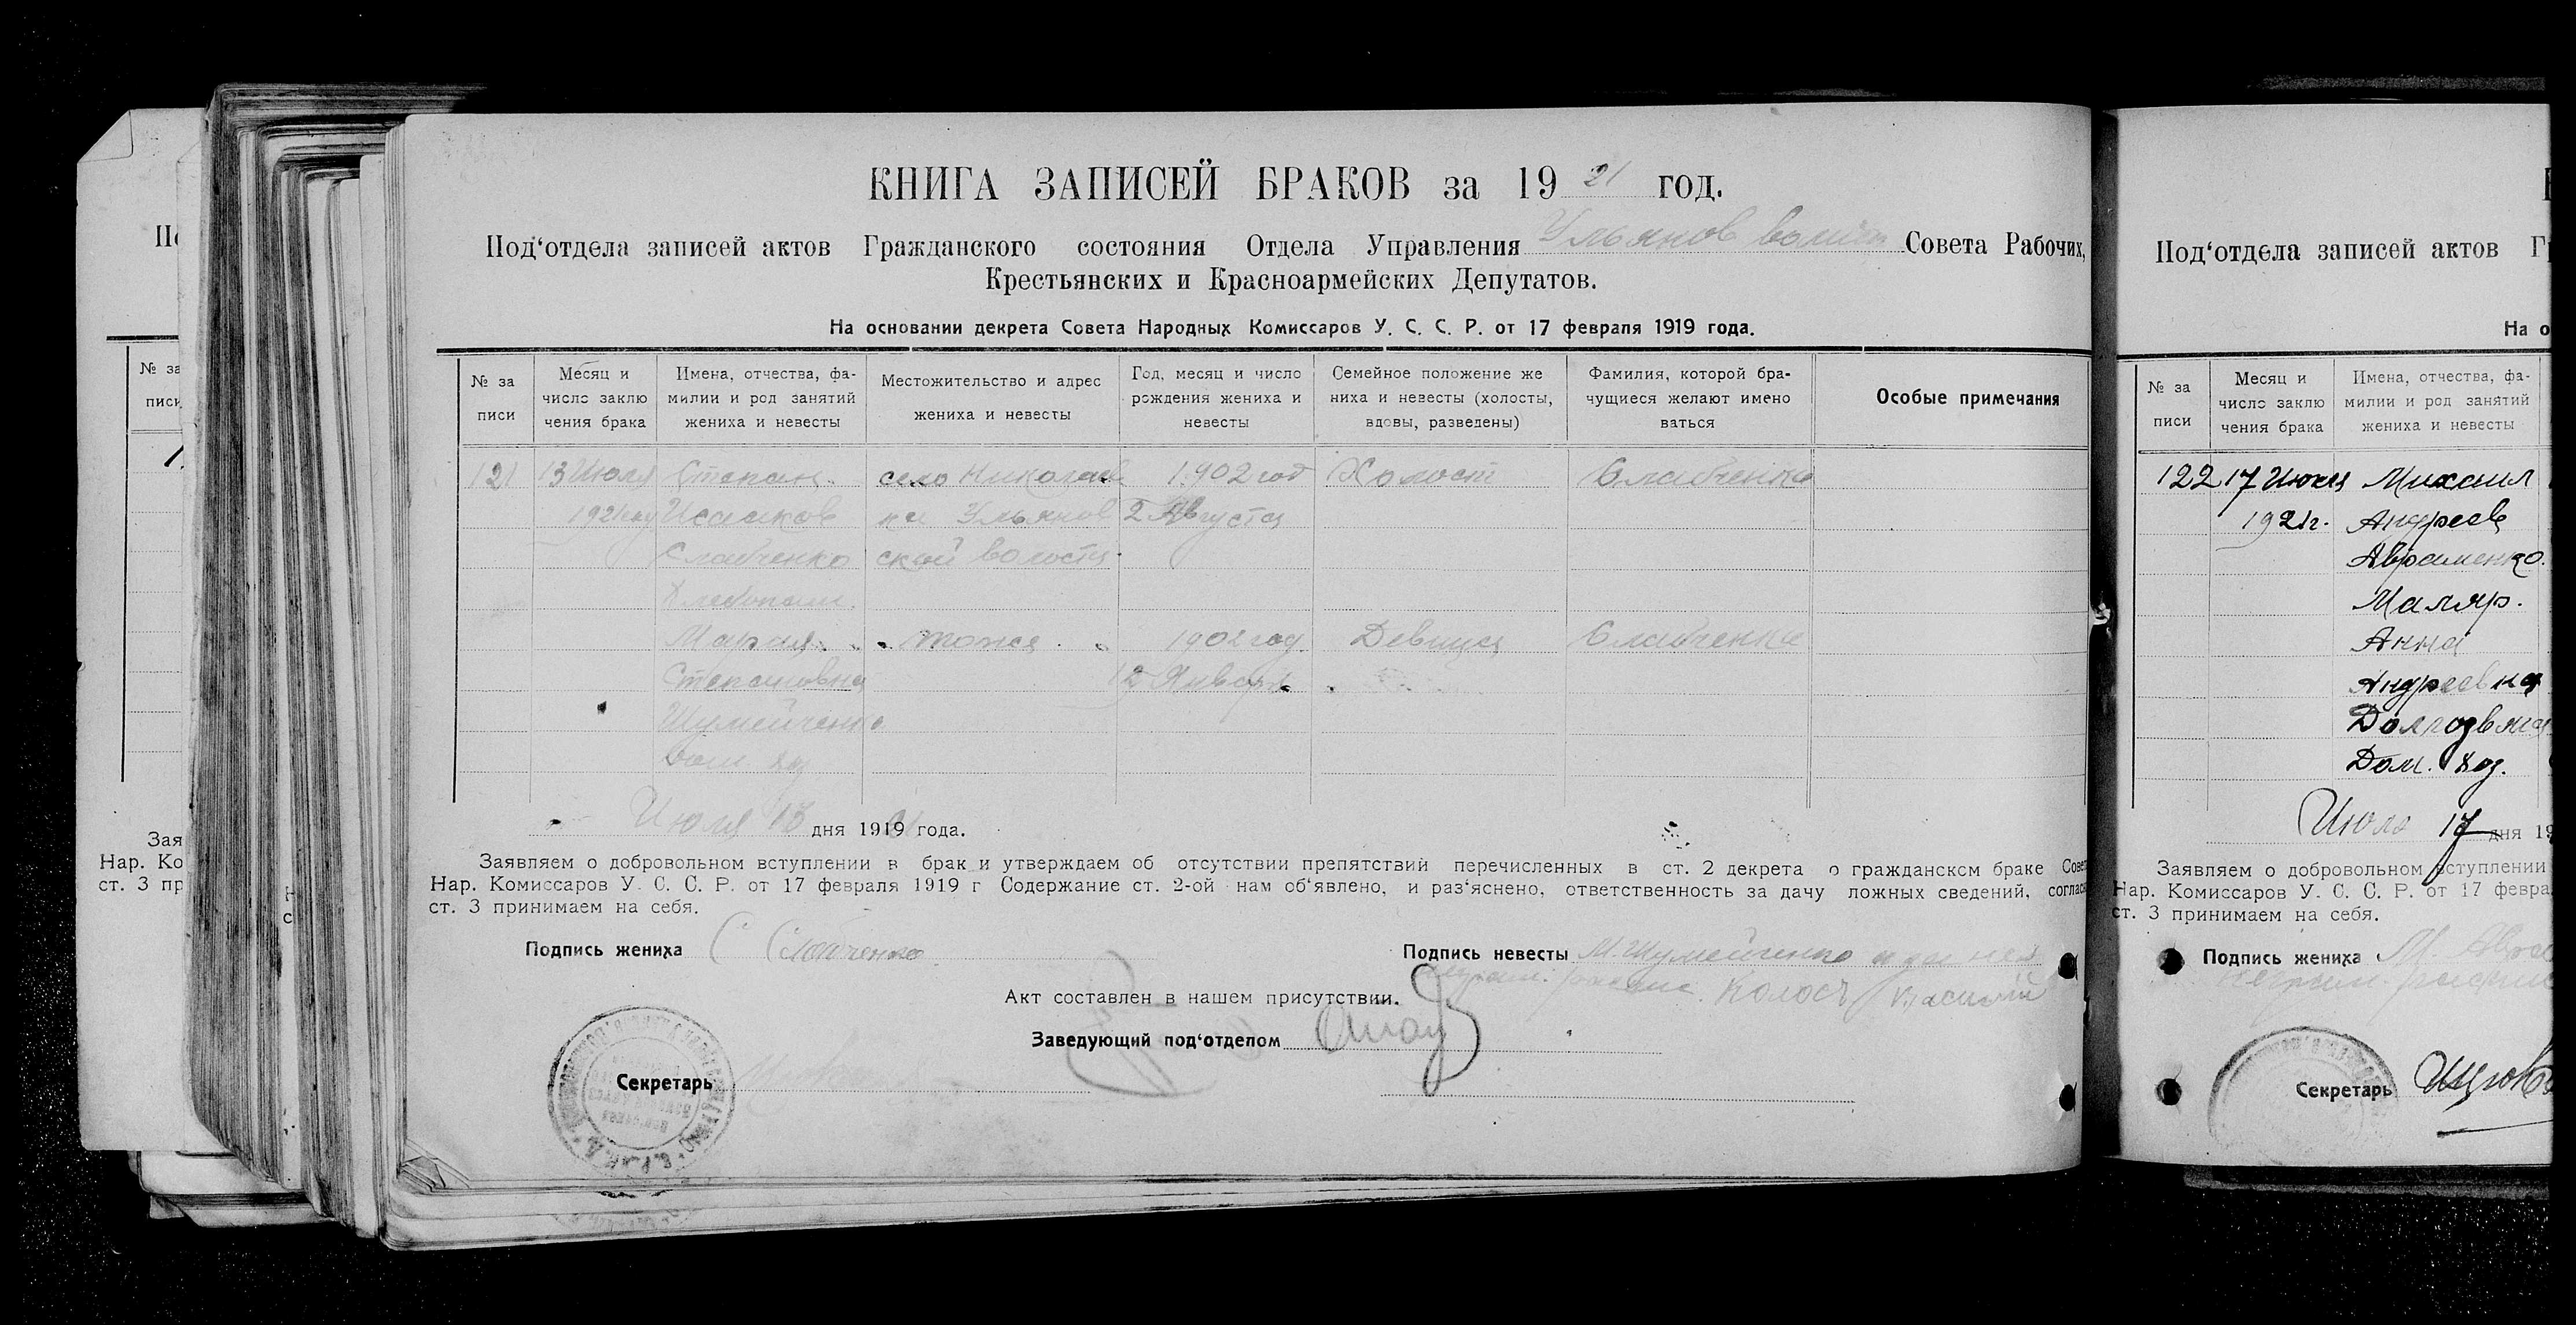 КНИГА ЗАПИСЕЙ БРАКОВ за 1921 год.
Под‘отдела записей актов Гражданского состояния Отдела Управления Ульянов волист Совета Рабочих,
Крестьянских и Красноармейских Депутатов.
На основании декрета Совета Народных Комиссаров У. С. С. Р. от 17 февраля 1919 года.
№ за писи
Месяц и число заклю чения брака
Имена, отчества, фа- милии и род занятий жениха и невесты
Местожительство и адрес жениха и невесты
Год, месяц и число рождения жениха и невесты
Семейное положение же ниха и невесты (холосты, вдовы, разведены)
Фамилия, которой бра- чущиеся желают имено ваться
Особые примечания
121 13 Июля Степан село Николаев 1902 год Холост Слабченко
1921 году Исааков ка Ульянов 2 Августа
Слабченко ской волости
Хлебопаш.
Мария " тоже " 1902 год Девица Слабченко
Степановна 12 Января
Шумейченко
Дом. хоз
Июля 13 дня 1921 года.
Заявляем о добровольном вступлении в брак и утверждаем об отсутствии препятствий перечисленных в ст. 2 декрета о гражданском браке Сове
Нар. Комиссаров У. С. С. Р. от 17 февраля 1919 г Содержание ст. 2-ой нам об‘явлено, и раз‘яснено, ответственность за дачу ложных сведений, соглас
ст. 3 принимаем на себя.
Подпись жениха С Слабченко
Подпись невесты М. Шумейченко а за нея
неграм. распис. Колось Василий
Акт составлен в нашем присутствии.
Заведующий под‘отделом
Секретарь
Под‘отдела записей актов Г
На о
№ за писи
Месяц и число заклю чения брака
Имена, отчества, фа- милии и род занятий жениха и невесты
122 17 Июля Михаил
1921г. Андреев
Авраменко.
Маляр.
Анна
Андреевна
Дом. хоз.
Июля 17 дня 19
Заявляем о добровольном вступлении
Нар. Комиссаров У. С. С. Р. от 17 февра
ст. 3 принимаем на себя.
Подпись жениха М Авра
Секретарь
№ за
писи
Зая
Нар. Ко
ст. 3 пр